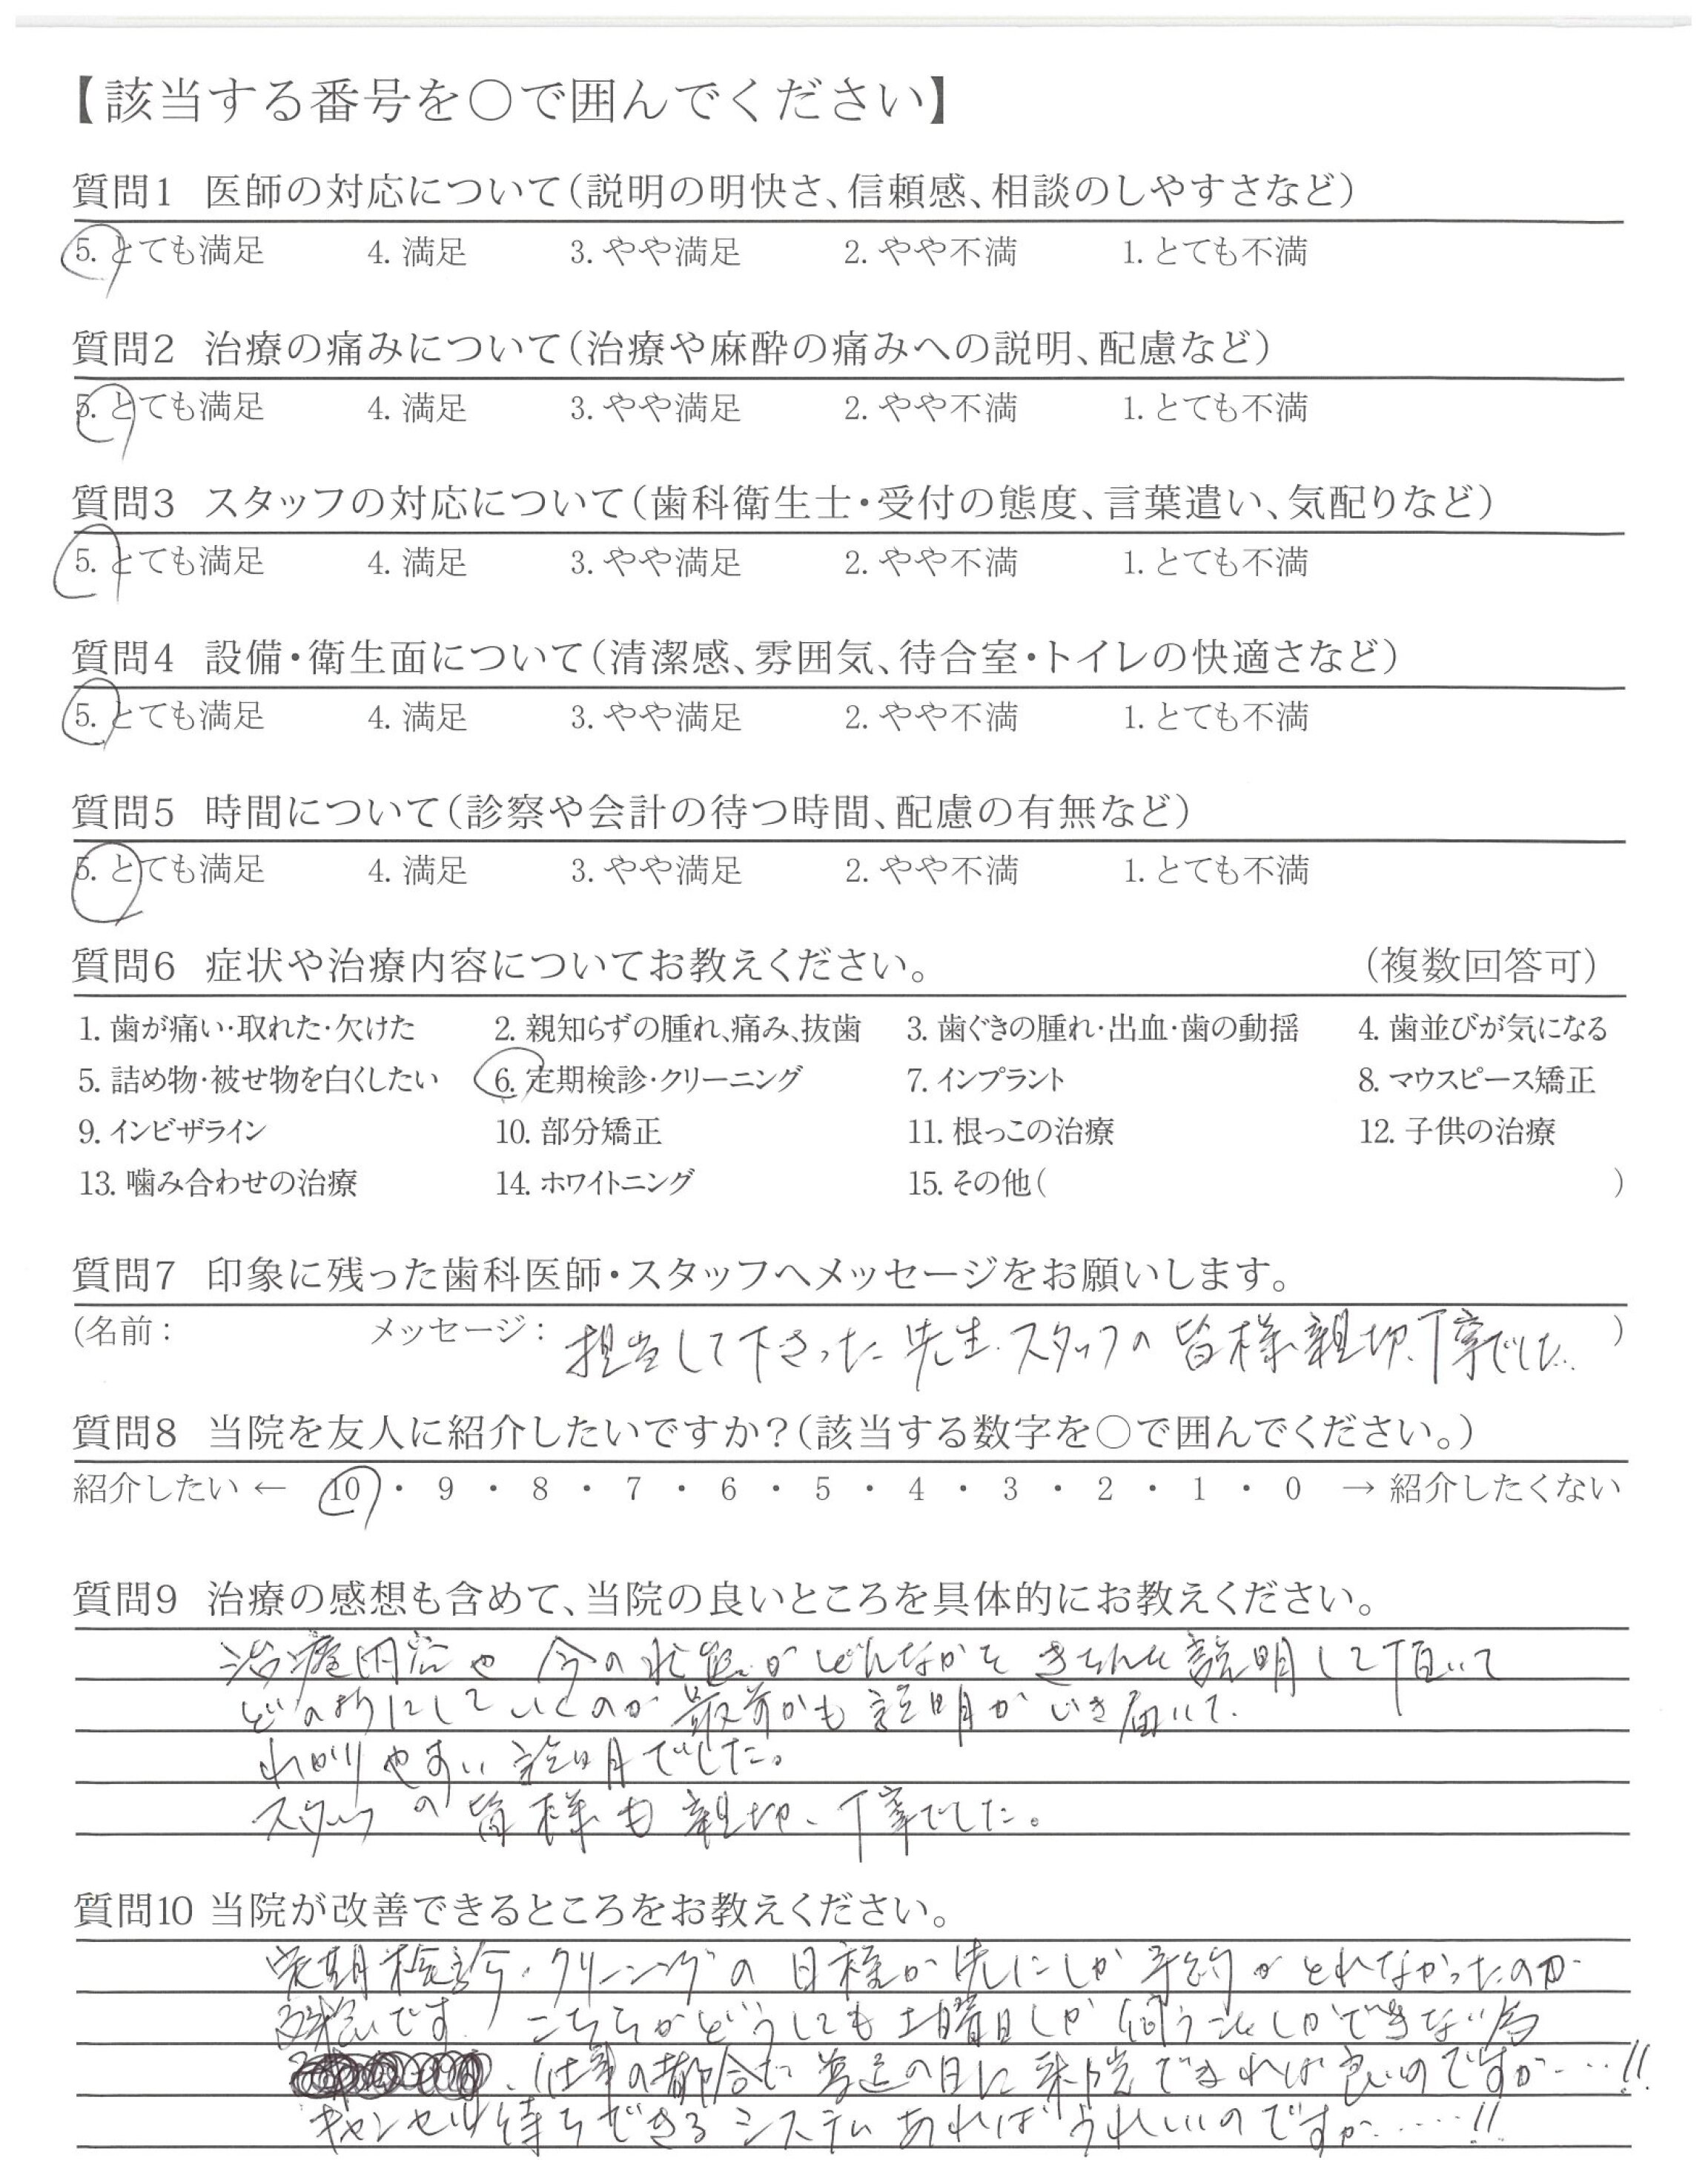 【該当する番号を○で囲んでください】
質問1 医師の対応について(説明の明快さ、信頼感、相談のしやすさなど)
5. とても満足 4. 満足 3. やや満足 2. やや不満 1. とても不満
質問2 治療の痛みについて(治療や麻酔の痛みへの説明、配慮など)
5. とても満足 4. 満足 3. やや満足 2. やや不満 1. とても不満
質問3 スタッフの対応について(歯科衛生士・受付の態度、言葉遣い、気配りなど)
5. とても満足 4. 満足 3. やや満足 2. やや不満 1. とても不満
質問4 設備・衛生面について(清潔感、雰囲気、待合室・トイレの快適さなど)
5. とても満足 4. 満足 3. やや満足 2. やや不満 1. とても不満
質問5 時間について(診察や会計の待つ時間、配慮の有無など)
5. とても満足 4. 満足 3. やや満足 2. やや不満 1. とても不満
質問6 症状や治療内容についてお教えください。 (複数回答可)
1. 歯が痛い・取れた・欠けた 2. 親知らずの腫れ、痛み、抜歯 3. 歯ぐきの腫れ・出血・歯の動揺 4. 歯並びが気になる
5. 詰め物・被せ物を白くしたい 6. 定期検診・クリーニング 7. インプラント 8. マウスピース矯正
9. インビザライン 10. 部分矯正 11. 根っこの治療 12. 子供の治療
13. 噛み合わせの治療 14. ホワイトニング 15. その他( )
質問7 印象に残った歯科医師・スタッフへメッセージをお願いします。
(名前: メッセージ: 担当して下さった先生、スタッフの皆様親切、丁寧でした。 )
質問8 当院を友人に紹介したいですか?(該当する数字を○で囲んでください。)
紹介したい ← 10 ・ 9 ・ 8 ・ 7 ・ 6 ・ 5 ・ 4 ・ 3 ・ 2 ・ 1 ・ 0 → 紹介したくない
質問9 治療の感想も含めて、当院の良いところを具体的にお教えください。
治療内容や今の状態がどんなかをきちんと説明して頂いて
どの様にしていくのが最善かも説明がいき届いて、
わかりやすい説明でした。
スタッフの皆様も親切、丁寧でした。
質問10 当院が改善できるところをお教えください。
定期検診・クリーニングの日程が先にしか予約がとれなかったのが
残念です。こちらがどうしても土曜日しか伺うことしかできない為
、仕事の都合で の日に来院できれば良いのですが…!!
キャンセル待ちできるシステムあればうれしいのですが……!!